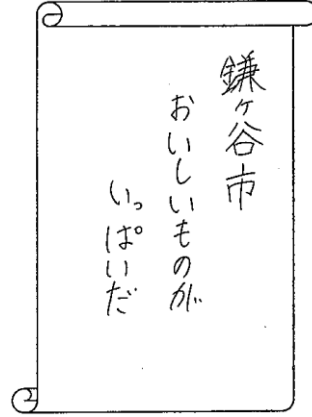 鎌ヶ谷市
おいしいものが
いっぱいだ